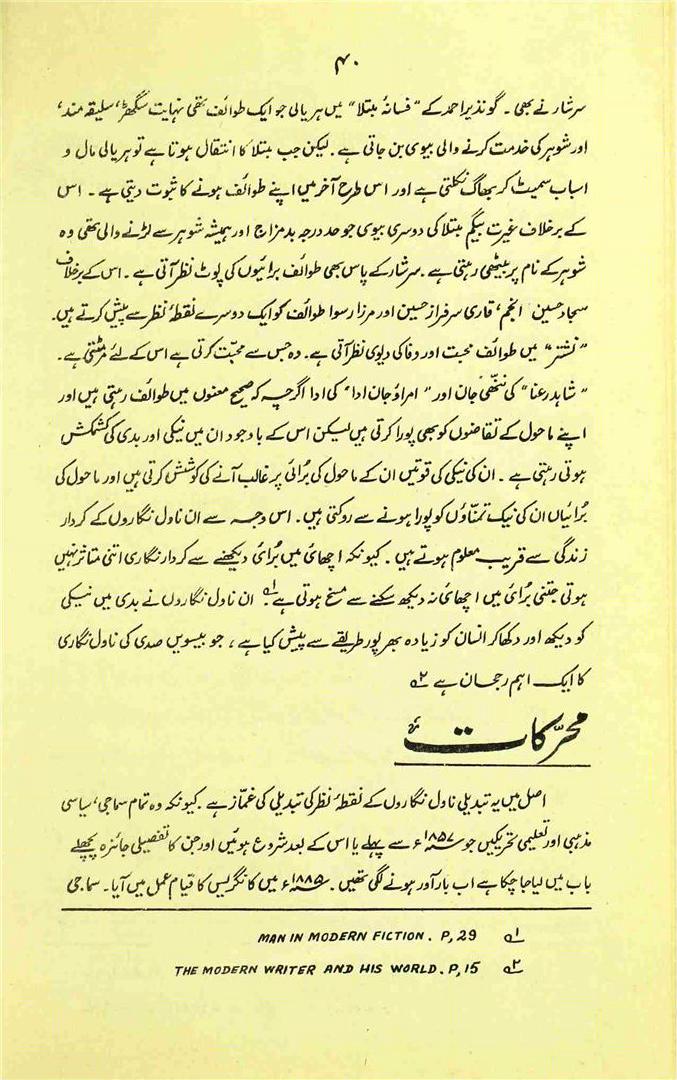 ۴۰
سرشار نے بھی۔ گو نذیر احمد کے "فسانۂ مبتلا" میں ہریالی جو ایک طوائف تھی نہایت سگھڑ، سلیقہ مند،
اور شوہر کی خدمت کرنے والی بیوی بن جاتی ہے۔ لیکن جب مبتلا کا انتقال ہوتا ہے تو ہریالی مال و
اسباب سمیٹ کر بھاگ نکلتی ہے اور اس طرح آخر میں اپنے طوائف ہونے کا ثبوت دیتی ہے۔ اس
کے برخلاف غیرت بیگم مبتلا کی دوسری بیوی جو حد درجہ بدمزاج اور ہمیشہ شوہر سے لڑنے والی تھی وہ
شوہر کے نام پر بیٹھی رہتی ہے۔ سرشار کے پاس بھی طوائف برائیوں کی پوٹ نظر آتی ہے۔ اس کے برخلاف
سجاد حسین انجم، قاری سرفراز حسین اور مرزا رسوا طوائف کو ایک دوسرے نقطۂ نظر سے پیش کرتے ہیں۔
"نشتر" میں طوائف محبت اور وفا کی دیوی نظر آتی ہے۔ وہ جس سے محبّت کرتی ہے اس کے لئے مر مٹتی ہے۔
"شاہد رعنا" کی ننّھی جان اور "امراؤ جان ادا" کی ادا اگرچہ کہ صحیح معنوں میں طوائف رہتی ہیں اور
اپنے ماحول کے تقاضوں کو بھی پورا کرتی ہیں لیکن اس کے باوجود ان میں نیکی اور بدی کی کشمکش
ہوتی رہتی ہے۔ ان کی نیکی کی قوتیں ان کے ماحول کی بُرائی پر غالب آنے کی کوشش کرتی ہیں اور ماحول کی
بُرائیاں ان کی نیک تمنّاؤں کو پورا ہونے سے روکتی ہیں۔ اس وجہ سے ان ناول نگاروں کے کردار
زندگی سے قریب معلوم ہوتے ہیں۔ کیونکہ اچھائی میں بُرائی دیکھنے سے کردار نگاری اتنی متاثر نہیں
ہوتی جتنی بُرائی میں اچھائی نہ دیکھ سکنے سے مسخ ہوتی ہے ؎۱ ان ناول نگاروں نے بدی میں نیکی
کو دیکھ اور دکھا کر انسان کو زیادہ بھرپور طریقے سے پیش کیا ہے، جو بیسویں صدی کی ناول نگاری
کا ایک اہم رجحان ہے ؎۲
محرّکات
اصل میں یہ تبدیلی ناول نگاروں کے نقطۂ نظر کی تبدیلی کی غمّاز ہے۔ کیونکہ وہ تمام سماجی، سیاسی
مذہبی اور تعلیمی تحریکیں جو ۱۸۵۷ء سے پہلے یا اس کے بعد شروع ہوئیں اور جن کا تفصیلی جائزہ پچھلے
باب میں لیا جا چکا ہے اب بار آور ہونے لگی تھیں۔ ۱۸۸۵ء میں کانگریس کا قیام عمل میں آیا۔ سماجی
؎۱ MAN IN MODERN FICTION. P, 29
؎۲ THE MODERN WRITER AND HIS WORLD. P, 15